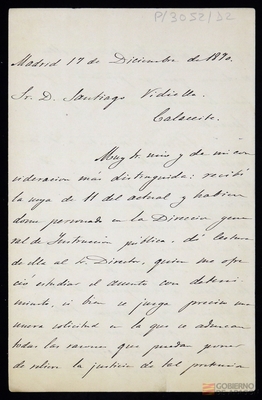 P/3052/D2
Madrid 17 de Diciembre de 1890.
Sr. D. Santiago Vidiella.
Calaceite.
Muy Sr. mio y de mi con-
sideracion más distinguida: recibí
la suya de 11 del actual y habien
dome personado en la Direccion gene
ral de Instruccion pública, dí lectura
de ella al Sr. Director, quien me ofre
ció estudiar el asunto con deteni-
miento, si bien se juzga precisa una
nueva solicitud en la que se aduzcan
todas las razones que puedan poner
de relieve la justicia de tal
GOBIERNO
DE ARAGON